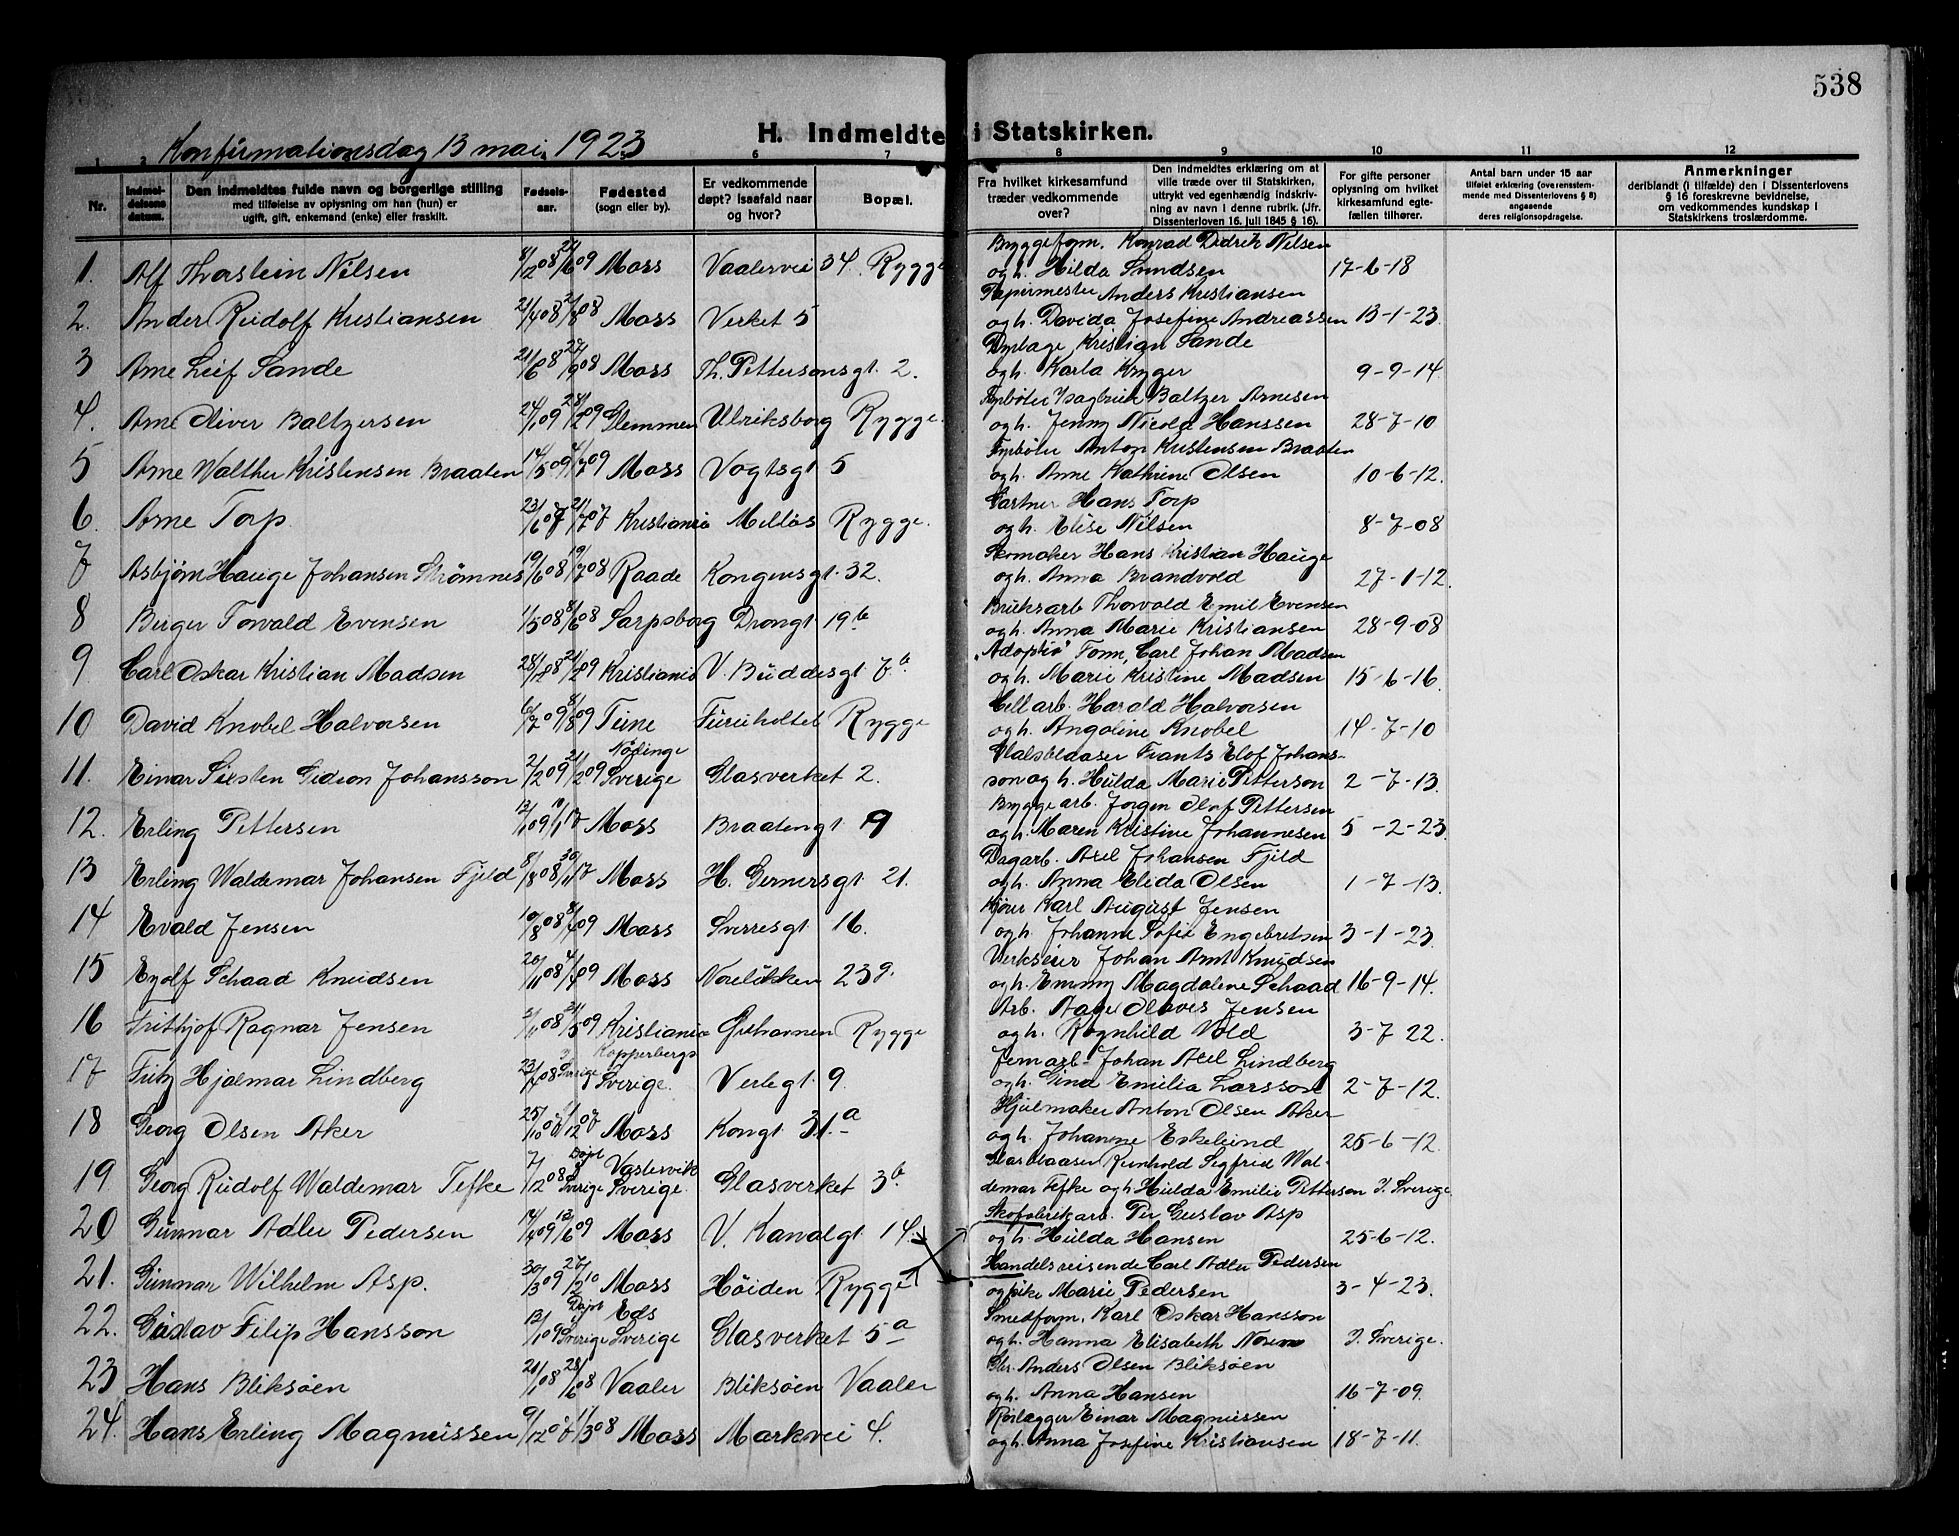 538
Konfirmationsdag 13 mai, 1923
H. Indmeldte i Statskirken.
1 2 6 7 8 9 10 11 12
Nr.
Indmeldelsens datum.
Den indmeldtes fulde navn og borgerlige stilling
med tilføielse av oplysning om han (hun) er
ugift, gift, enkemand (enke) eller fraskilt.
Fødselsaar.
Fødested
(sogn eller by).
Er vedkommende
døpt? Isaafald naar
og hvor?
Bopæl.
Fra hvilket kirkesamfund
træder vedkommende
over?
Den indmeldtes erklæring om at
ville træde over til Statskirken,
uttrykt ved egenhændig indskriv-
ning av navn i denne rubrik. (Jfr.
Dissenterloven 16. juli 1845 § 16).
For gifte personer
oplysning om hvilket
kirkesamfund egte-
fællen tilhører.
Antal barn under 15 aar
tilføiet erklæring (overensstem-
mende med Dissenterlovens § 8)
angaaende
deres religionsopdragelse.
Anmerkninger
deriblandt (i tilfælde) den i Dissenterlovens
§ 16 foreskrevne bevidnelse,
om vedkommendes kundskap i
Statskirkens troslærdomme.
Byggeform. Konrad Didrik Nilsen
1. Alf Thorstein Nilsen 8/12 08 27/6 09 Moss Vaalervei 34. Rygge
og h. Hilda 17-6-18
Papirmester Anders Kristiansen
2. Anders Rudolf Kristiansen 21/4 08 2/8 08 Moss Verket 5
og h. Davida Josefine Andreassen 13-1-23.
Kristian Sande
3 Arne Leif Sande 21/6 08 27/9 08 Moss Th. Pettersonsgt. 2.
og h. Karla Kryger 9-9-14.
Baltzer Arnesen
4. Arne Oliver Baltzersen 24/1 09 Glemmen Ulriksborg Rygge.
og h. Jenny Nicola Hanssen 28-7-10
Fyrbøter Anton Kristensen Braaten
5 Arne Walther Kristensen Braaten 14/5 09 4/7 09 Moss Vogtsgt 5
og h. Anne Kathrine Olsen 10-6-12.
Gartner Hans Torp
6. Arne Torp. 23/6 07 21/7 07 Kristiania Melløs Rygge.
og h. Elise Nilsen 8-7-08
Skomaker Hans Kristian Hauge
7 Asbjørn Hauge Johansen Strømnes 19/6 08 19/7 08 Raade Kongensgt. 32.
og h. Anna Brandvold 27-1-12.
Bruksarb Thorvald Emil Evensen
8 Birger Torvald Evensen 1/5 08 8/6 08 Sarpsborg Drongt 19b
og h. Anna Marie Kristiansen 28-9-08
„Adoptiv" Tomm, Carl Johan Madsen
9. Carl Oskar Kristian Madsen 28/12 08 21/2 09 Kristiania V. Buddesgt 7b.
og h. Marie Kristine Madsen 15-6-16.
Cell arb. Harald Halvorsen
10 David Knobel Halvorsen 6/7 09 8/8 09 Tune Furuholtet Rygge
og h. Angoline Knobel 14-7-10
Frants Elof Johans-
Nödinge
11. Einar Sixsten Gideon Johansson 2/2 09 21/2 09 Sverige Glasverket 2.
son og h. Hulda Marie Petterson 2-7-13.
Byggearb. Jørgen Olaf Pettersen
12. Erling Pettersen 13/1 09 Moss Braatengt 19
og h. Maren Kristine Johannesen 5-2-23.
Dagarb. Axel Johansen Fjeld
13 Erling Waldemar Johansen Fjeld 8/8 08 Moss H. Gernersgt 21.
og h. Anna Elida Olsen 1-7-13.
Kjører Karl August Jensen
14 Evald Jensen 19/8 08 8/4 09 Moss Sverresgt 16.
og h. Johanne Sofie Engebretsen 3-1-23.
Johan Arnt Knudsen
15 Eyolf Schaad Knudsen 20/11 08 4/4 09 Moss Noreløkken 23 g.
og h. Emmy Magdalene Schaad 16-9-14.
Arb. Aage Olaves Jensen
16 Frithjof Ragnar Jensen 2/11 08 Kristiania Rygge
og h. Ragnhild Vold 3-7 22.
Kopperbergs
Jernarb. Johan Axel Lindberg
17 Fritz Hjalmar Lindberg 23/4 08 Sverige Sverige. Verlegt 9.
og h. Gina Emilia Larsson 2-7-12.
Hjulmaker Anton Olsen Aker
18 Georg Olsen Aker 25/10 07 1/12 07 Moss Kongt 31a
og h. Johanne Eskelund 25-6-12.
Glasblaaser Reinhold Segfrid Wal-
Döpt Vastervik
19 Georg Rudolf Waldemar Tefke 7/12 08 Sverige Sverige. Glasverket 3b.
demar Tefke og h. Hulda Emilie Petterson I. Sverige.
Skofabrikarb. Per Gustav Asp
20 Gunnar Adler Pedersen 14/4 09 13/6 09 Moss V. Kanalgt 14.
og h. Hulda Hansen 25-6-12.
Handelsreisende Carl Adler Pedersen
21. Gunnar Wilhelm Asp. 30/3 09 27/2 10 Moss Høiden Rygge
og pike Marie Pedersen 3-4-23.
Döpt Eds
Smedform. Karl Oskar Hansson
22. Gustav Filip Hansson 13/1 09 Sverige Sverige Glasverket 5a
og h. Hanna Elisabeth I. Sverige.
Gbr. Anders Olsen Bliksøen
23 Hans Bliksøen 21/1 08 28/6 08 Vaaler Bliksøen Vaaler
og h. Anna Hansen 16-7-09.
Rørlægger Einar Magnussen
24. Hans Erling Magnussen 9/12 07 1/3 08 Moss Markvei 4.
og h. Anna Josefine Kristiansen 18-7-11.